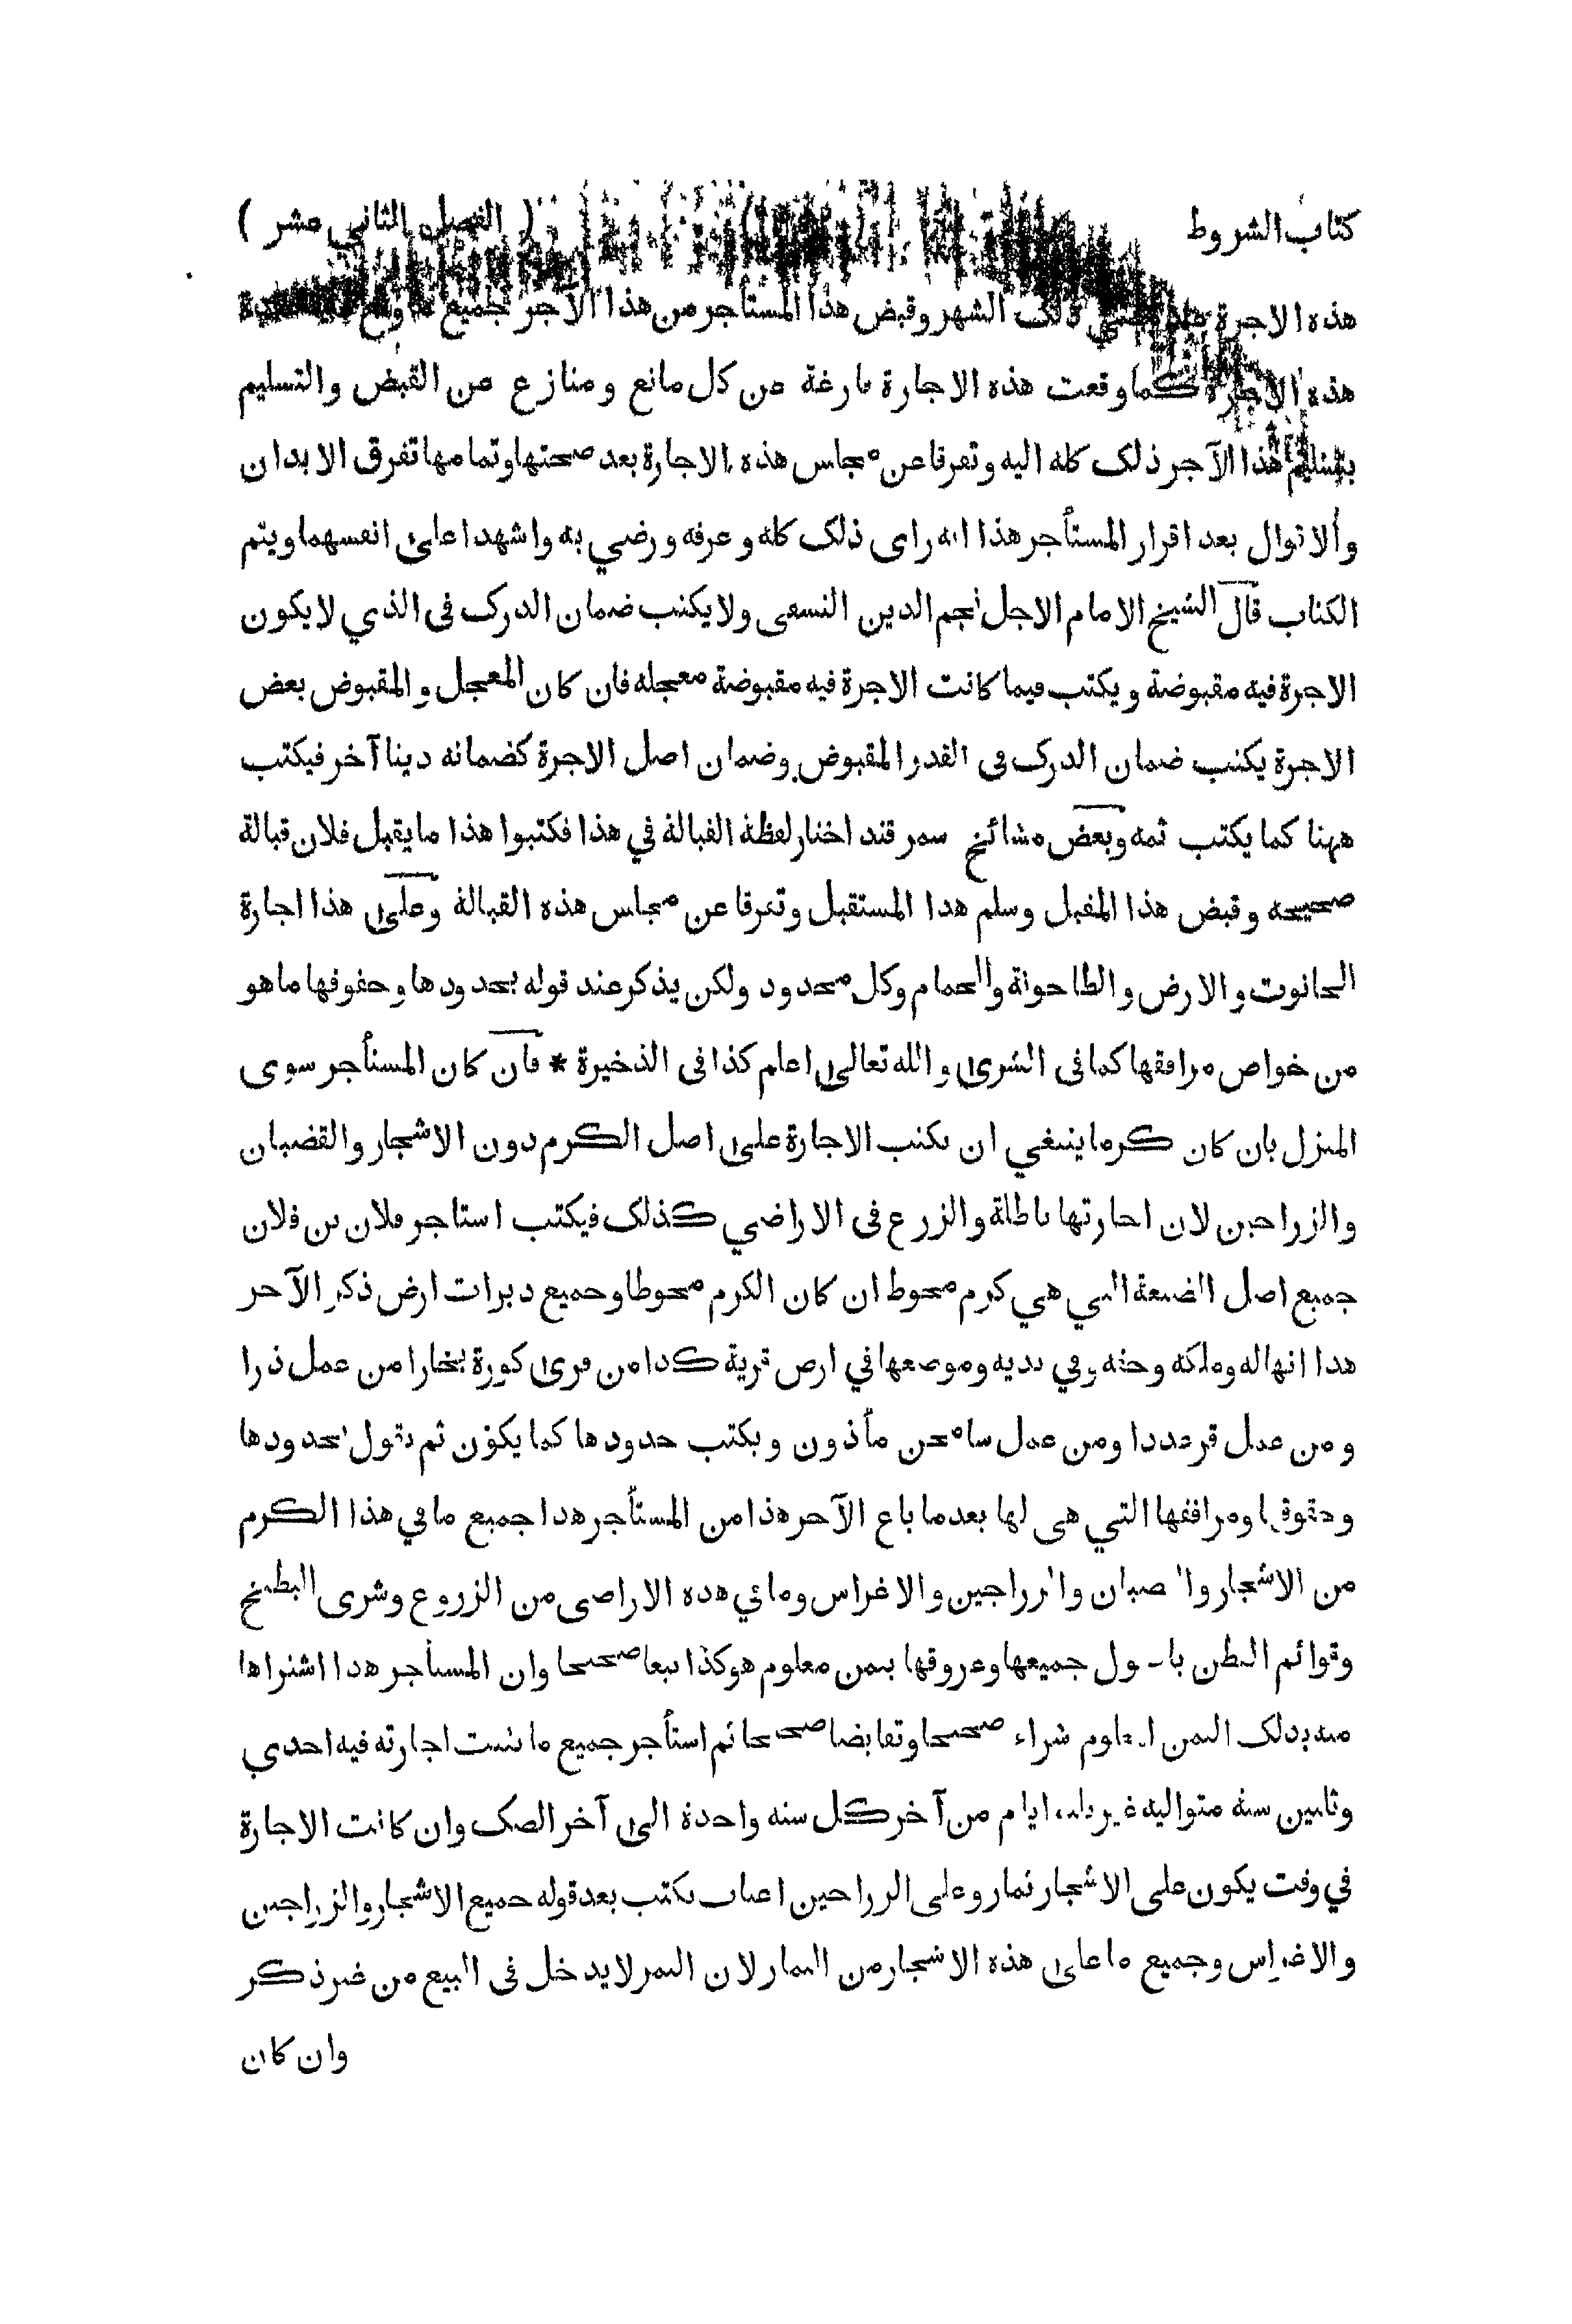 كتاب الشروط ( الفصل الثاني عشر )
هذه الاجرة عند مضي ذلك الشهر وقبض هذا المستأجر من هذا الآجر جميع ما وقع عليه عقدة
هذه الاجارة كما وقعت هذه الاجارة فارغة عن كل مانع ومنازع عن القبض والتسليم
بتسليم هذا الآجر ذلك كله اليه وتفرقا عن مجلس هذه الاجارة بعد صحتها وتمامها تفرق الابدان
والاقوال بعد اقرار المستأجر هذا انه راى ذلك كله وعرفه ورضي به واشهدا على انفسهما ويتم
الكتاب قال الشيخ الامام الاجل نجم الدين النسفى ولا يكتب ضمان الدرك فى الذي لا يكون
الاجرة فيه مقبوضة ويكتب فيما كانت الاجرة فيه مقبوضة معجله فان كان المعجل والمقبوض بعض
الاجرة يكتب ضمان الدرك فى القدر المقبوض وضمان اصل الاجرة كضمانه دينا آخر فيكتب
ههنا كما يكتب ثمه وبعض مشائخ سمرقند اختار لفظة القبالة في هذا فكتبوا هذا ما يقبل فلان قبالة
صحيحه وقبض هذا المقبل وسلم هذا المستقبل وتفرقا عن مجلس هذه القبالة وعلى هذا اجارة
الحانوت والارض والطاحونة والحمام وكل محدود ولكن يذكر عند قوله بحدودها وحقوقها ما هو
من خواص مرافقها كما فى الشرى والله تعالى اعلم كذا فى الذخيرة * فان كان المستأجر سوى
المنزل بان كان كرما ينبغي ان يكتب الاجارة على اصل الكرم دون الاشجار والقضبان
والزراجين لان اجارتها باطلة والزرع فى الاراضي كذلك فيكتب استاجر فلان بن فلان
جميع اصل الضيعة التي هي كرم محوط ان كان الكرم محوطا وجميع دبرات ارض ذكر الآجر
هذا انها له وملكه وحقه وفي يديه وموضعها في ارض قرية كذا من قرى كورة بخارا من عمل ذرا
ومن عمل قرعددا ومن عمل سامجن مأذون ويكتب حدودها كما يكون ثم يقول بحدودها
وحقوقها ومرافقها التي هى لها بعدما باع الآجر هذا من المستأجر هذا جميع ما في هذا الكرم
من الاشجار والقضبان والزراجين والاغراس وما في هذه الاراضى من الزروع وشرى البطيخ
وقوائم القطن باصول جميعها وعروقها بثمن معلوم هو كذا بيعا صحيحا وان المستأجر هذا اشتراها
منه بذلك الثمن المعلوم شراء صحيحا وتقابضا صحيحا ثم استأجر جميع ما يثبت اجارته فيه احدي
وثلثين سنة متواليه غير ثلثة ايام من آخر كل سنه واحدة الى آخر الصك وان كانت الاجارة
في وقت يكون على الاشجار ثمار وعلى الزراجين اعناب يكتب بعد قوله جميع الاشجار والزراجين
والاغراس وجميع ما على هذه الاشجار من الثمار لان الثمر لا يدخل فى البيع من غير ذكر
وان كان